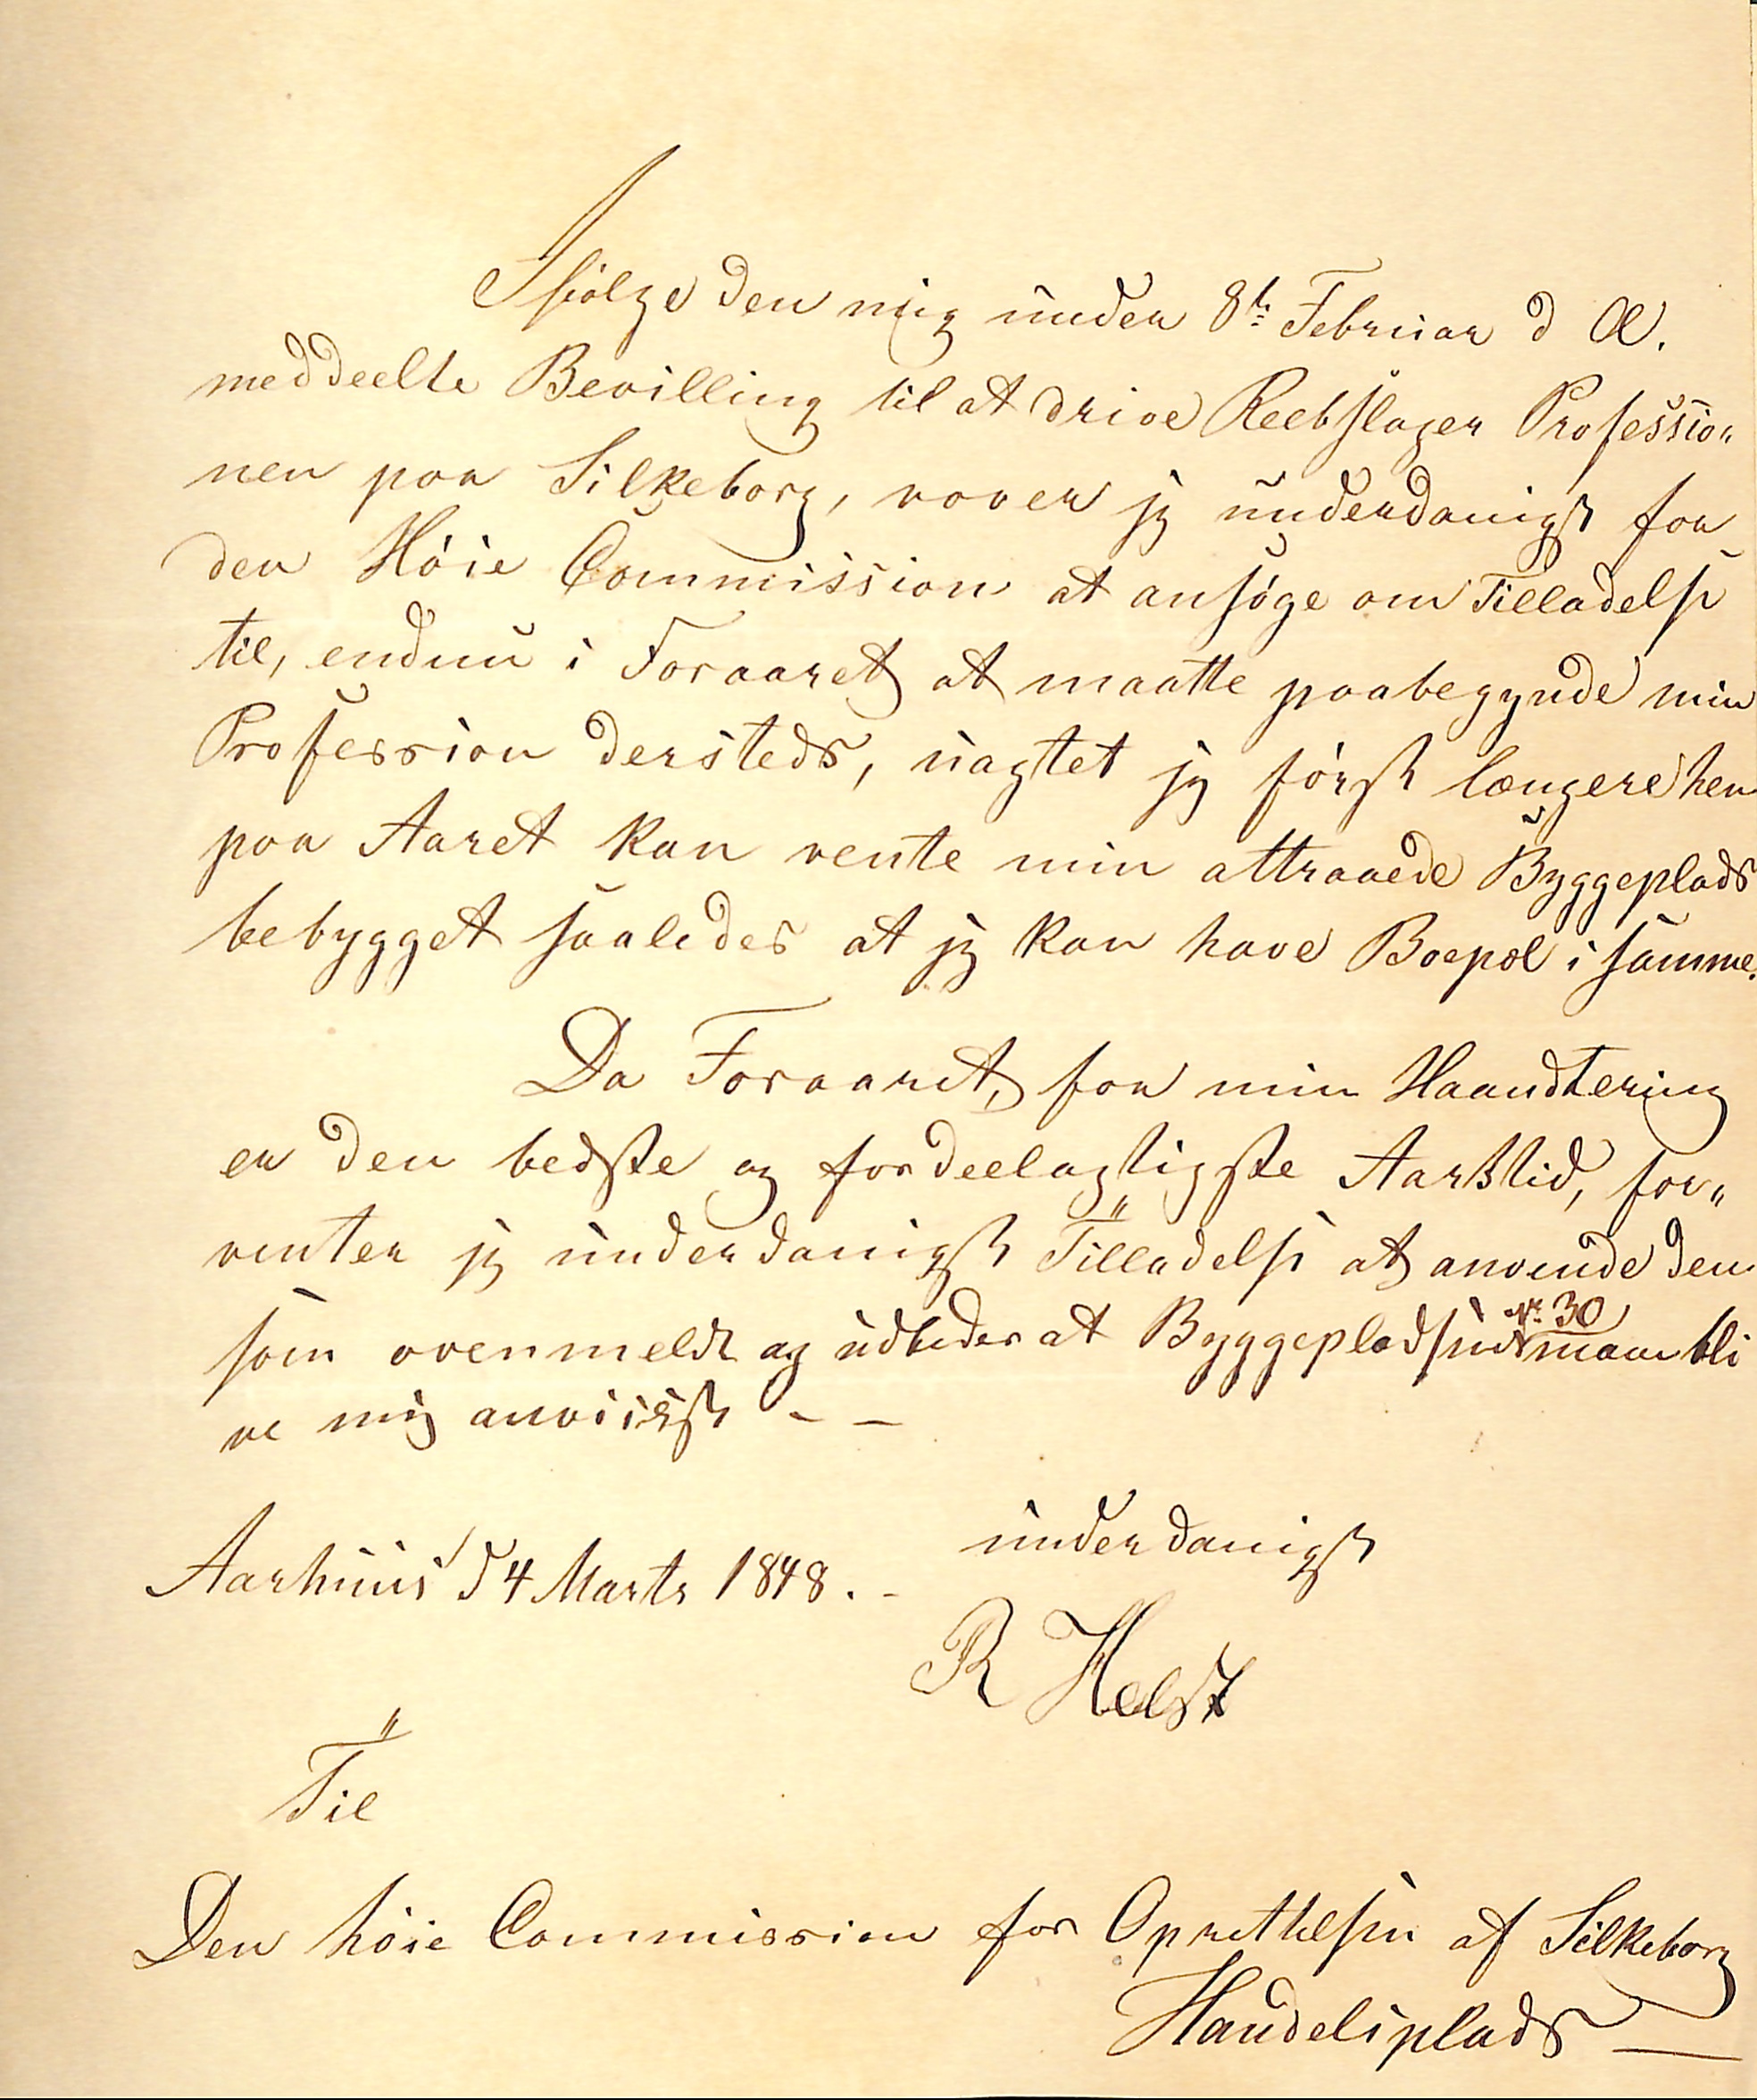 Ifølge den mig under 8de Februar d A.
meddeelte Bevilling til at drive Reebslager Professio„
nen paa Silkeborg, vover jeg underdanigst for
den Høie Commission at ansøge om Tilladelse
til, endnu i Foraaret at maatte paabegynde min
Profession dersteds, uagtet jeg først længere hen
paa Aaret kan vente min attraaede Byggeplads
bebygget saaledes at jeg kan have Boepæl i samme.
Da Foraaret, for min Haandtering
er den bedste og fordeelagtigste Aarstid, for„
venter jeg underdanigst Tilladelse at anvende den
som ovenmeldt og udbeder at Byggepladsen Nr. 30 maae bli
ve mig anviist - -
underdanigst
Aarhuus d 4 Marts 1848. -
R Helst
Til
Den høie Commission for Oprettelsen af Silkeborg
Handelsplads —